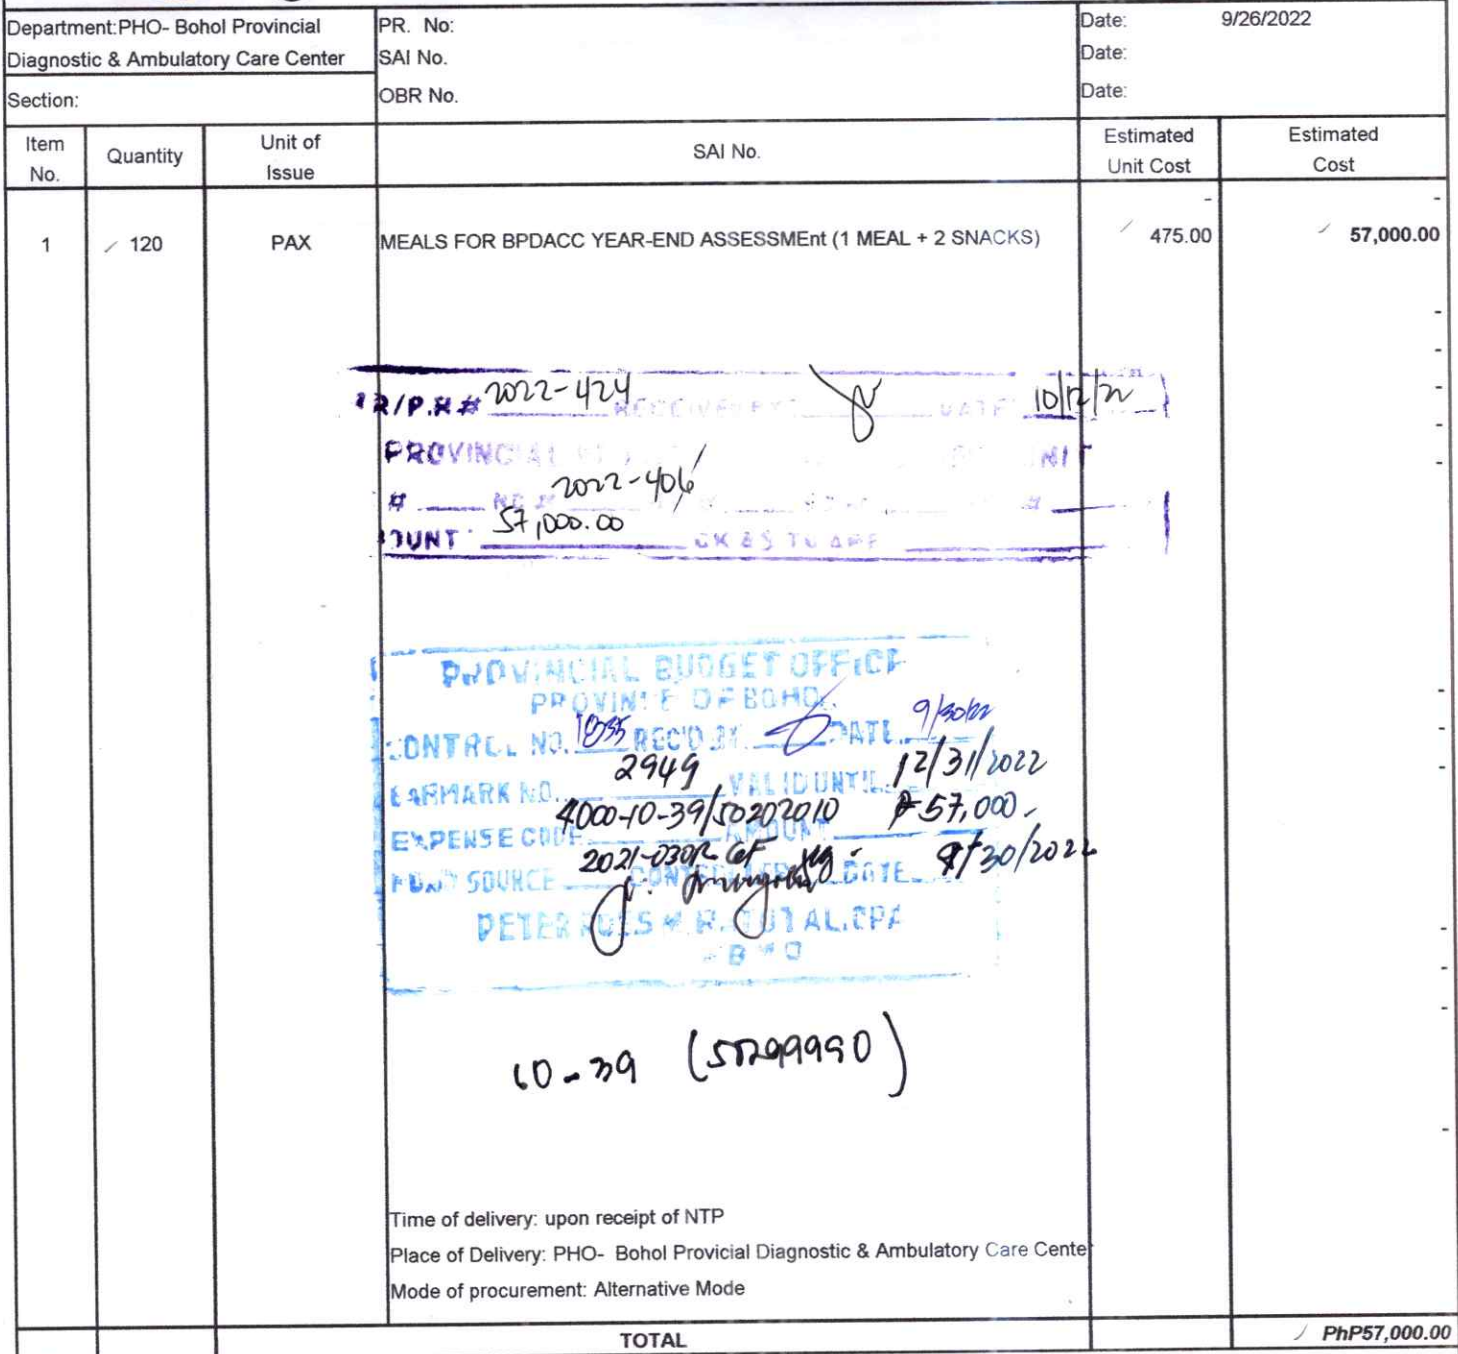 Department:PHO- Bohol Provincial
Diagnostic & Ambulatory Care Center
Section:
PR. No:
SAI No.
OBR No.
Date: 9/26/2022
Date:
Date:
Item No.
Quantity
Unit of Issue
SAI No.
Estimated Unit Cost
Estimated Cost
-
-
1 120 PAX MEALS FOR BPDACC YEAR-END ASSESSMEnt (1 MEAL + 2 SNACKS) 475.00 57,000.00
R/P.R # 2022-424 RECEIVED BY DATE 10/12/22
PROVINCIAL
# 2022-406 #
OUNT 57,000.00
PROVINCIAL BUDGET OFFICE
PROVINCE OF BOHOL
CONTROL NO. REC'D BY DATE 9/30/22
EARMARK NO. 2949 VALID UNTIL 12/31/2022
EXPENSE CODE 4000-10-39/50202010 AMOUNT ₱57,000-
FUND SOURCE DATE 9/30/2022
10-39 (50299990)
Time of delivery: upon receipt of NTP
Place of Delivery: PHO- Bohol Provicial Diagnostic & Ambulatory Care Cente
Mode of procurement: Alternative Mode
TOTAL PhP57,000.00